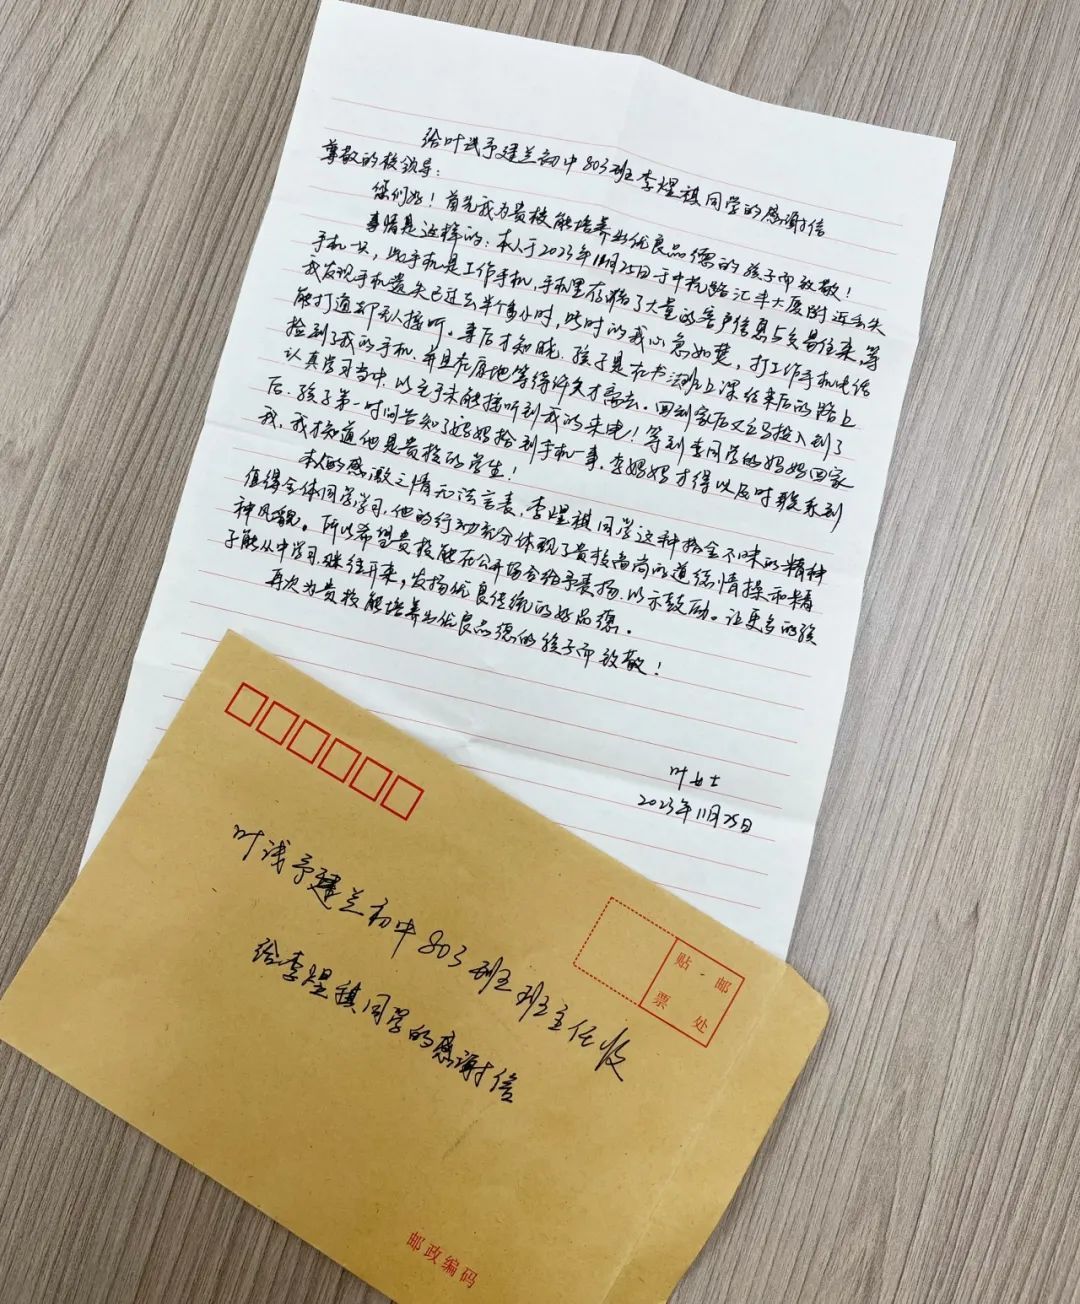 给叶浅予建兰初中803班李煜祺同学的感谢信
尊敬的校领导：
您们好！首先我为贵校能培养出优良品德的孩子而致敬！
事情是这样的：本人于2023年11月25日于中杭路汇丰大厦附近丢失
手机一只，此手机是工作手机，手机里存储了大量的客户信息与交易往来，等
我发现手机遗失已过去半个多小时，此时的我心急如焚，打工作手机电话
能打通却无人接听。事后才知晓，孩子是在书法班上课结束后的路上
捡到了我的手机，并且在原地等待许久才离去。回到家后又立马投入到了
认真学习当中，以至于未能接听到我的来电！等到李同学的妈妈回家
后，孩子第一时间告知了妈妈捡到手机一事，李妈妈才得以及时联系到
我，我才知道他是贵校的学生！
本人的感激之情无法言表，李煜祺同学这种拾金不昧的精神
值得全体同学学习，他的行动充分体现了贵校高尚的道德情操和精
神风貌。所以希望贵校能在公开场合给予表扬，以示鼓励。让更多的孩
子能从中学习，继往开来，发扬优良传统的好品德。
再次为贵校能培养出优良品德的孩子而致敬！
叶女士
2023年11月25日
叶浅予建兰初中803班班主任收
给李煜祺同学的感谢信
贴 邮
票 处
邮政编码